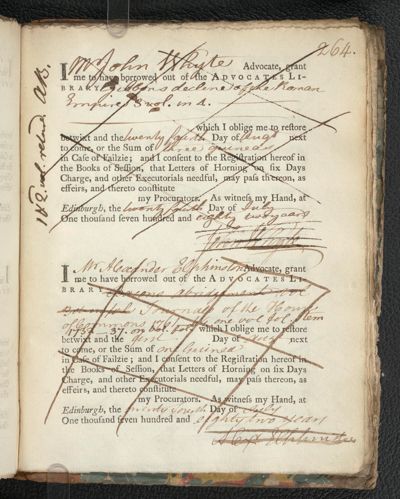 264.
I Mr John Whyte Advocate, grant
me to have borrowed out of the ADVOCATES LI-
BRARY Gibbons decline of the Roman
Empire 8vol. in 4.
which I oblige me to restore
betwixt and the twenty fourth Day of Augt next
to come, or the Sum of three guineas
in Case of Failzie; and I consent to the Registration hereof in
the Books of Session, that Letters of Horning on six Days
Charge, and other Executorials needful, may pass thereon, as
effeirs, and thereto constitute
my Procurators. As witness my Hand, at
Edinburgh, the twenty fourth Day of July
One thousand seven hundred and eighty two years
John Whyte
I Mr Alexander Elphinston Advocate, grant
me to have borrowed out of the ADVOCATES LI-
BRARY
Journals of the House
of Commons one vol. fol. Item
1732. 37. on vol. fol. which I oblige me to restore
betwixt and the first Day of next
to come, or the Sum of one Guinea
in Case of Failzie; and I consent to the Registration hereof in
the Books of Session, that Letters of Horning on six Days
Charge, and other Executorials needful, may pass thereon, as
effeirs, and thereto constitute
my Procurators. As witness my Hand, at
Edinburgh, the twenty fourth Day of July
One thousand seven hundred and eighty two years
Alexr Elphinston